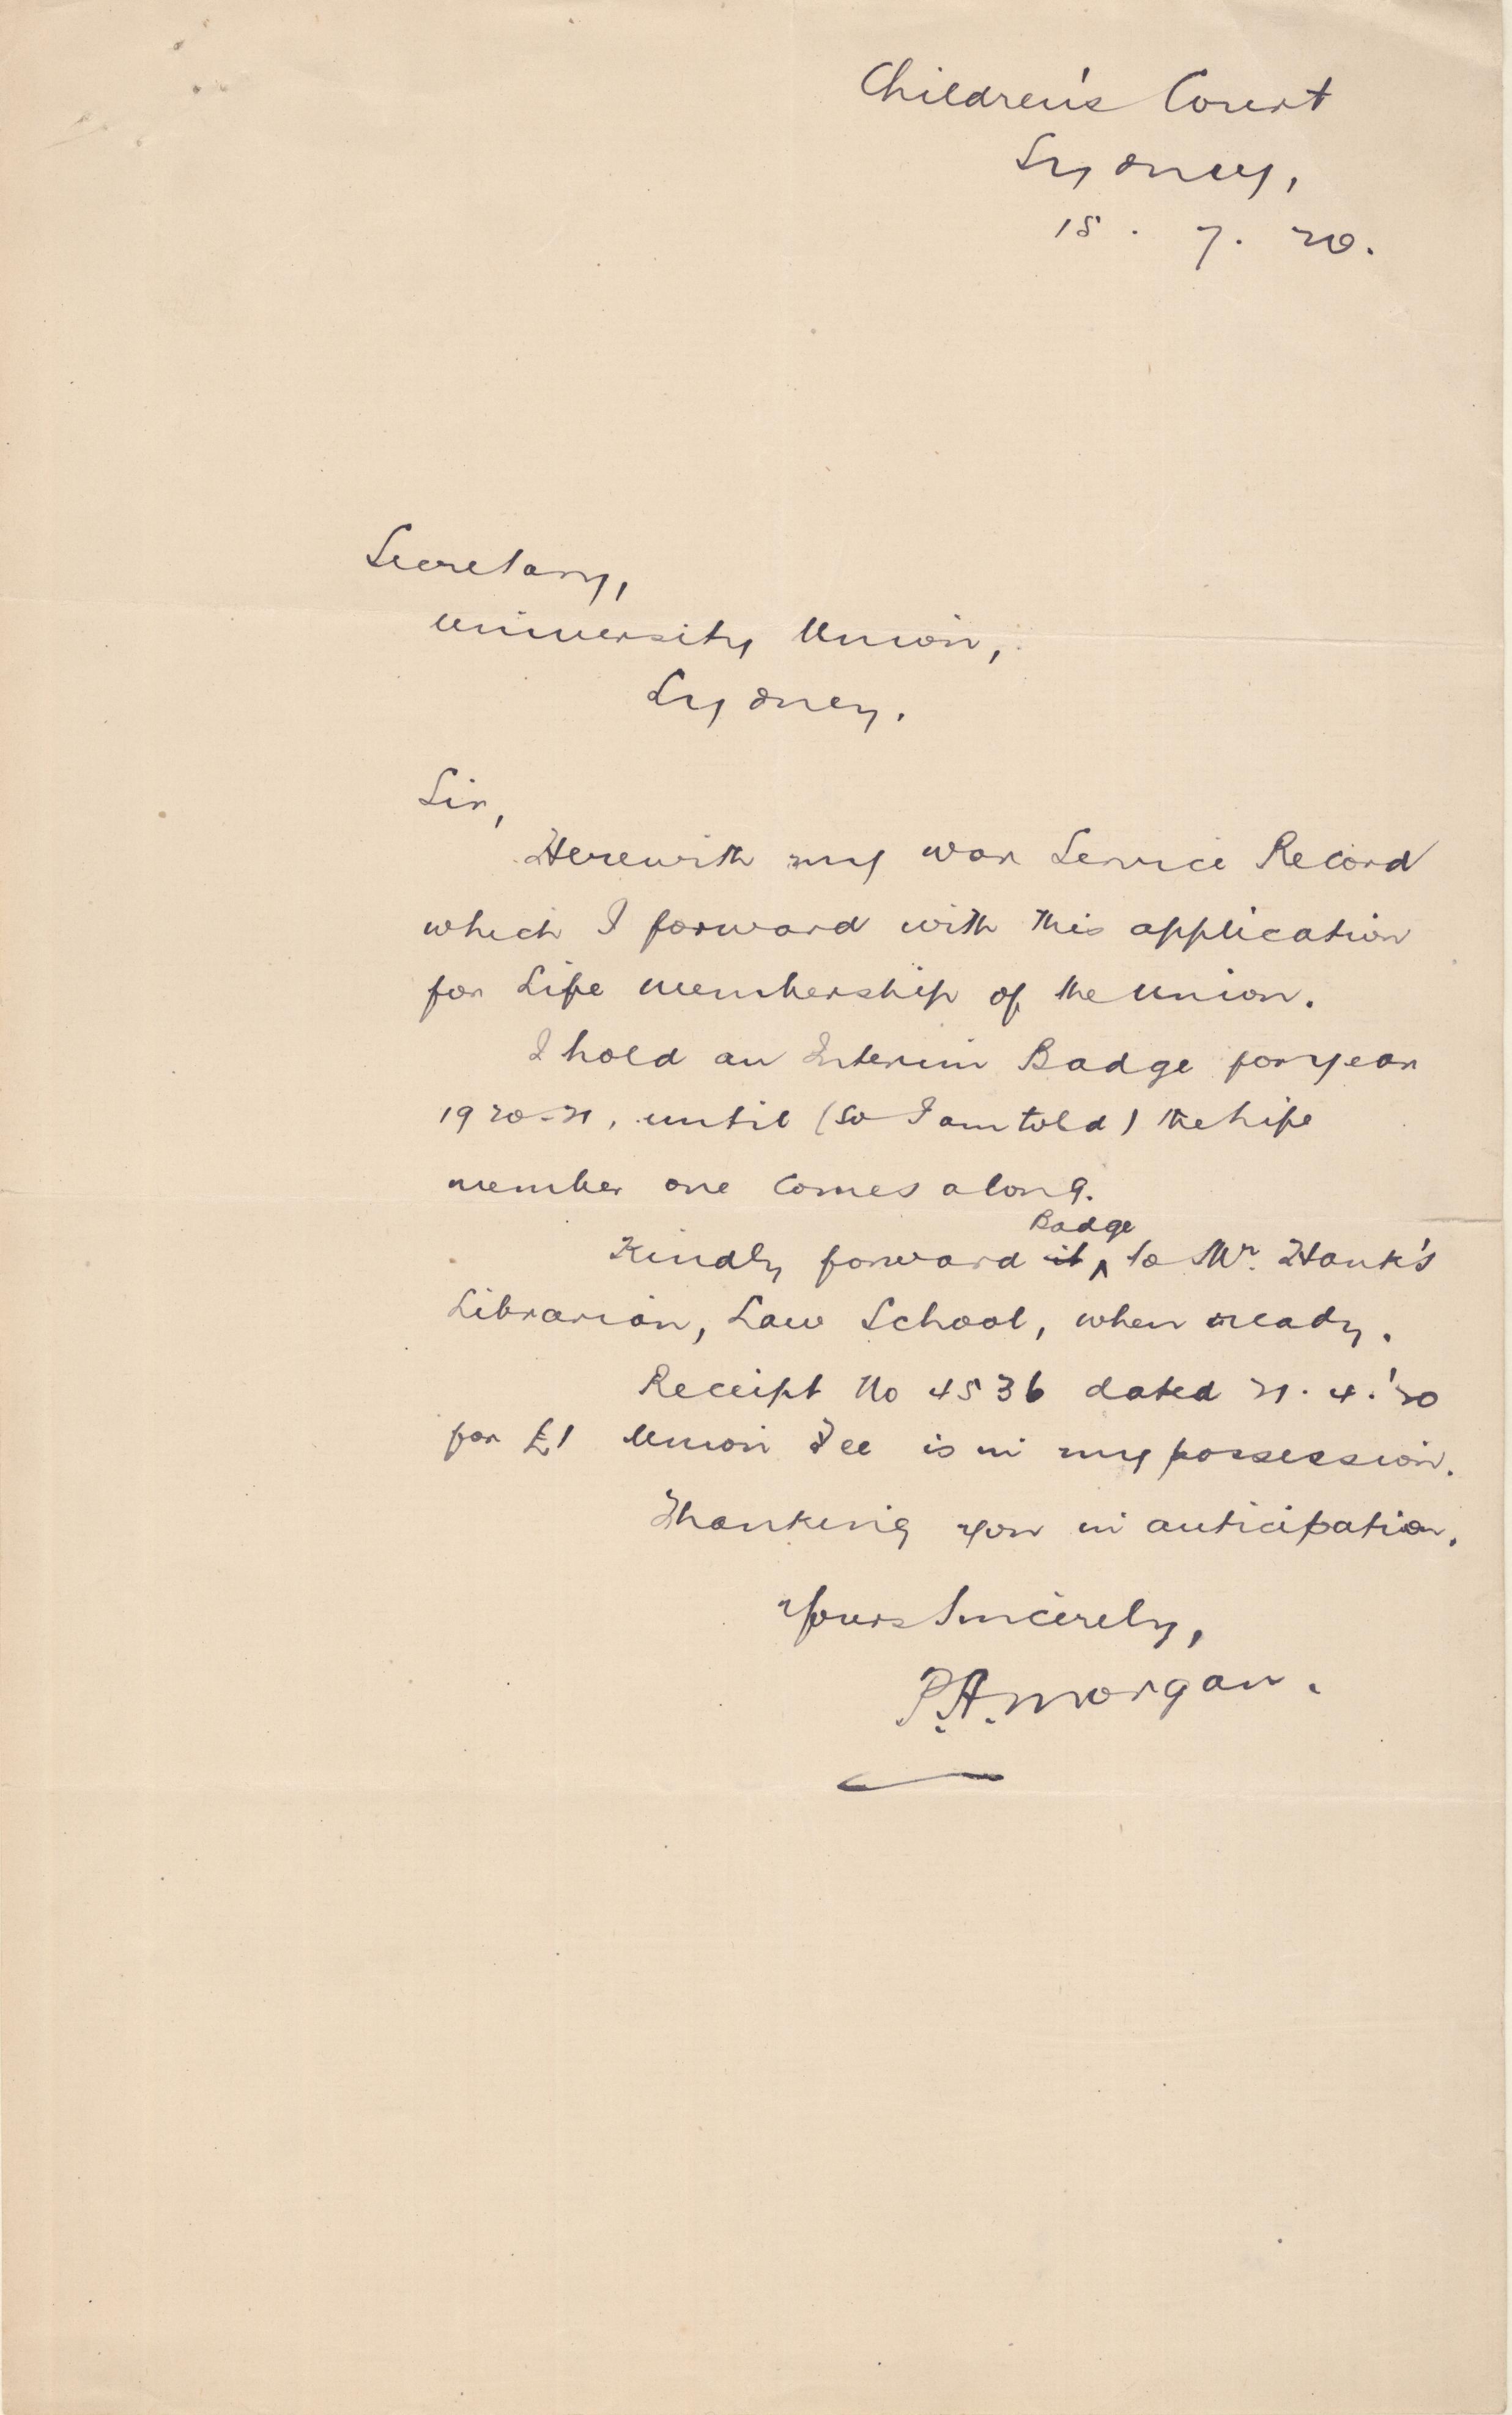 Children's Court
Sydney,
15. 7. 20.
Secretary,
University Union,
Sydney.
Sir,
Herewith my War Service Record
which I forward with this application
for Life membership of the Union.
I hold an Interim Badge for year
1920-21, until (so I am told) the life
member one comes along.
Kindly forward it Badge to Mr. Hank's
Librarian, Law School, when ready.
Receipt No 4536 dated 21. 4. '20
for £1 Union Fee is in my possession.
Thanking you in anticipation,
Yours Sincerely,
P.A. Morgan.